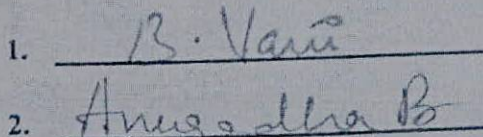 1. B. Vani
2. Anuradha B